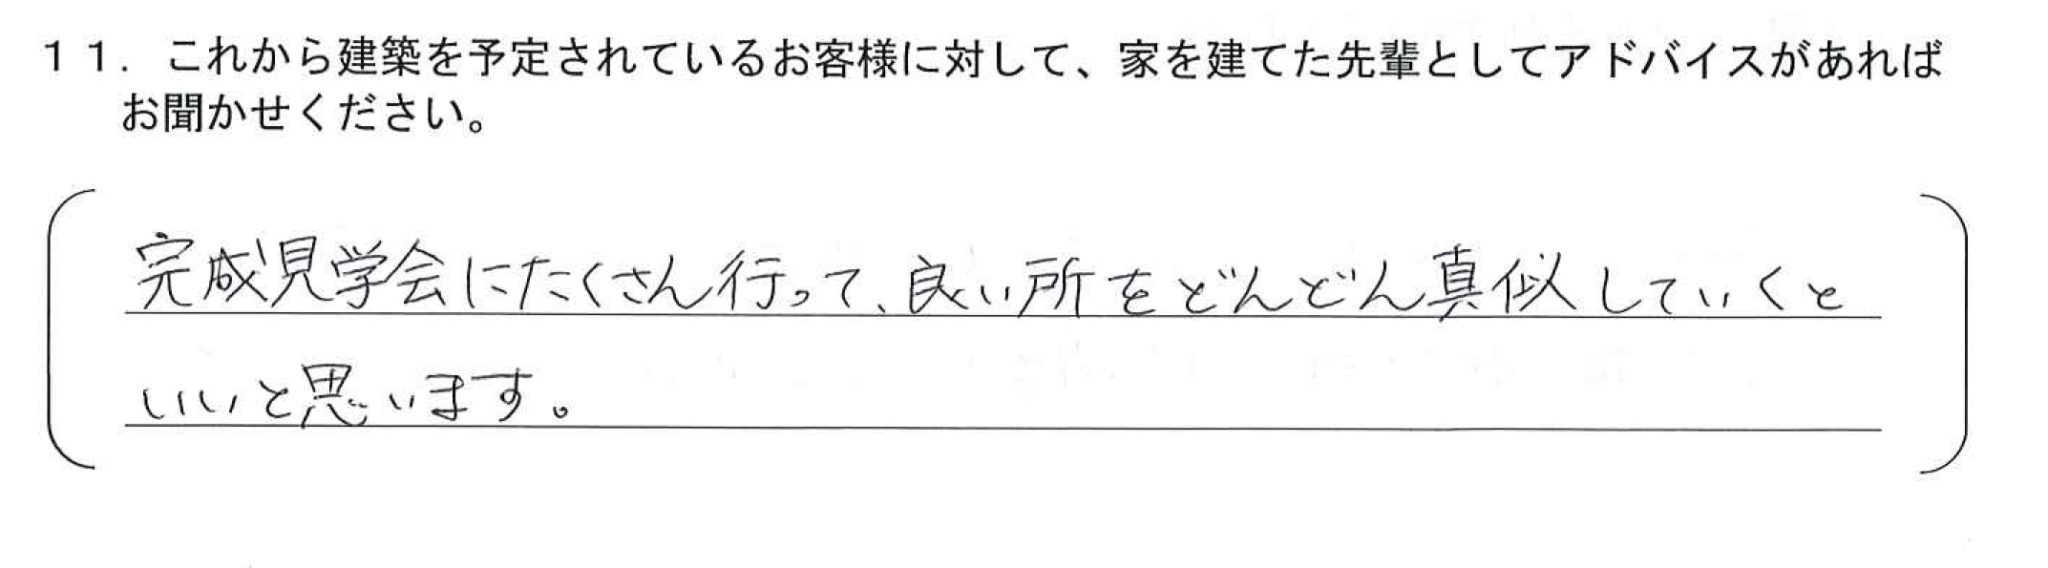 １１．これから建築を予定されているお客様に対して、家を建てた先輩としてアドバイスがあれば
お聞かせください。
完成見学会にたくさん行って、良い所をどんどん真似していくと
いいと思います。